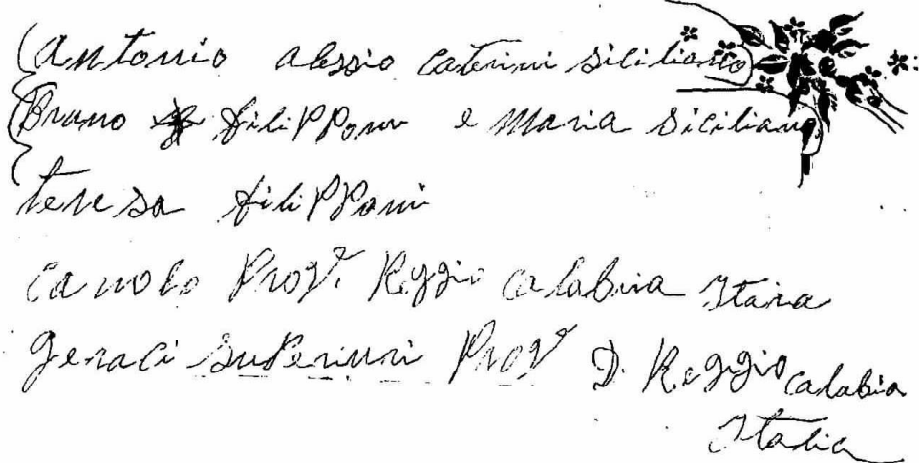 Antonio alessio Caterini Siciliano
Bruno filiPPoni e Maria Siciliano
teresa filiPPoni
Canolo Prov. Reggio Calabria Itaia
Geraci SuPeriuri Prov D. Reggio Calabia
Italia